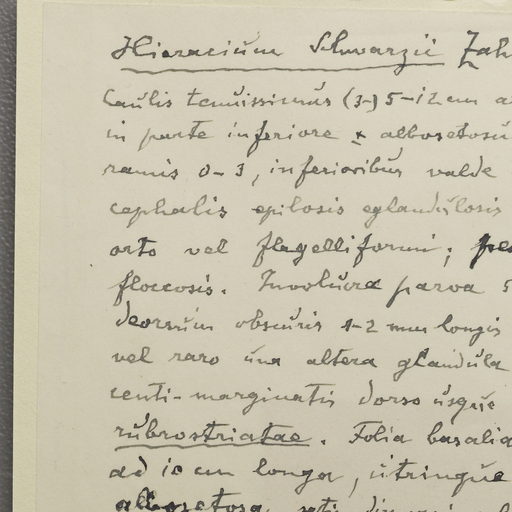 Hieracium Schwarzii Zah
Caulis tenuissimus (3-) 5-12 cm a
in parte inferiore ± albosetosu
ramis 0-3, inferioribus valde
cephalis epilosis eglandulosis
orto vel flagelliformi; pe
floccosis. Involucra parva 5
deorsum obscuris 1-2 mm longis
vel raro una altera glandula
centi-marginatis dorso usque
rubrostriatae. Folia basalia
ad 10 cm longa, utrinque
albosetosa, satis